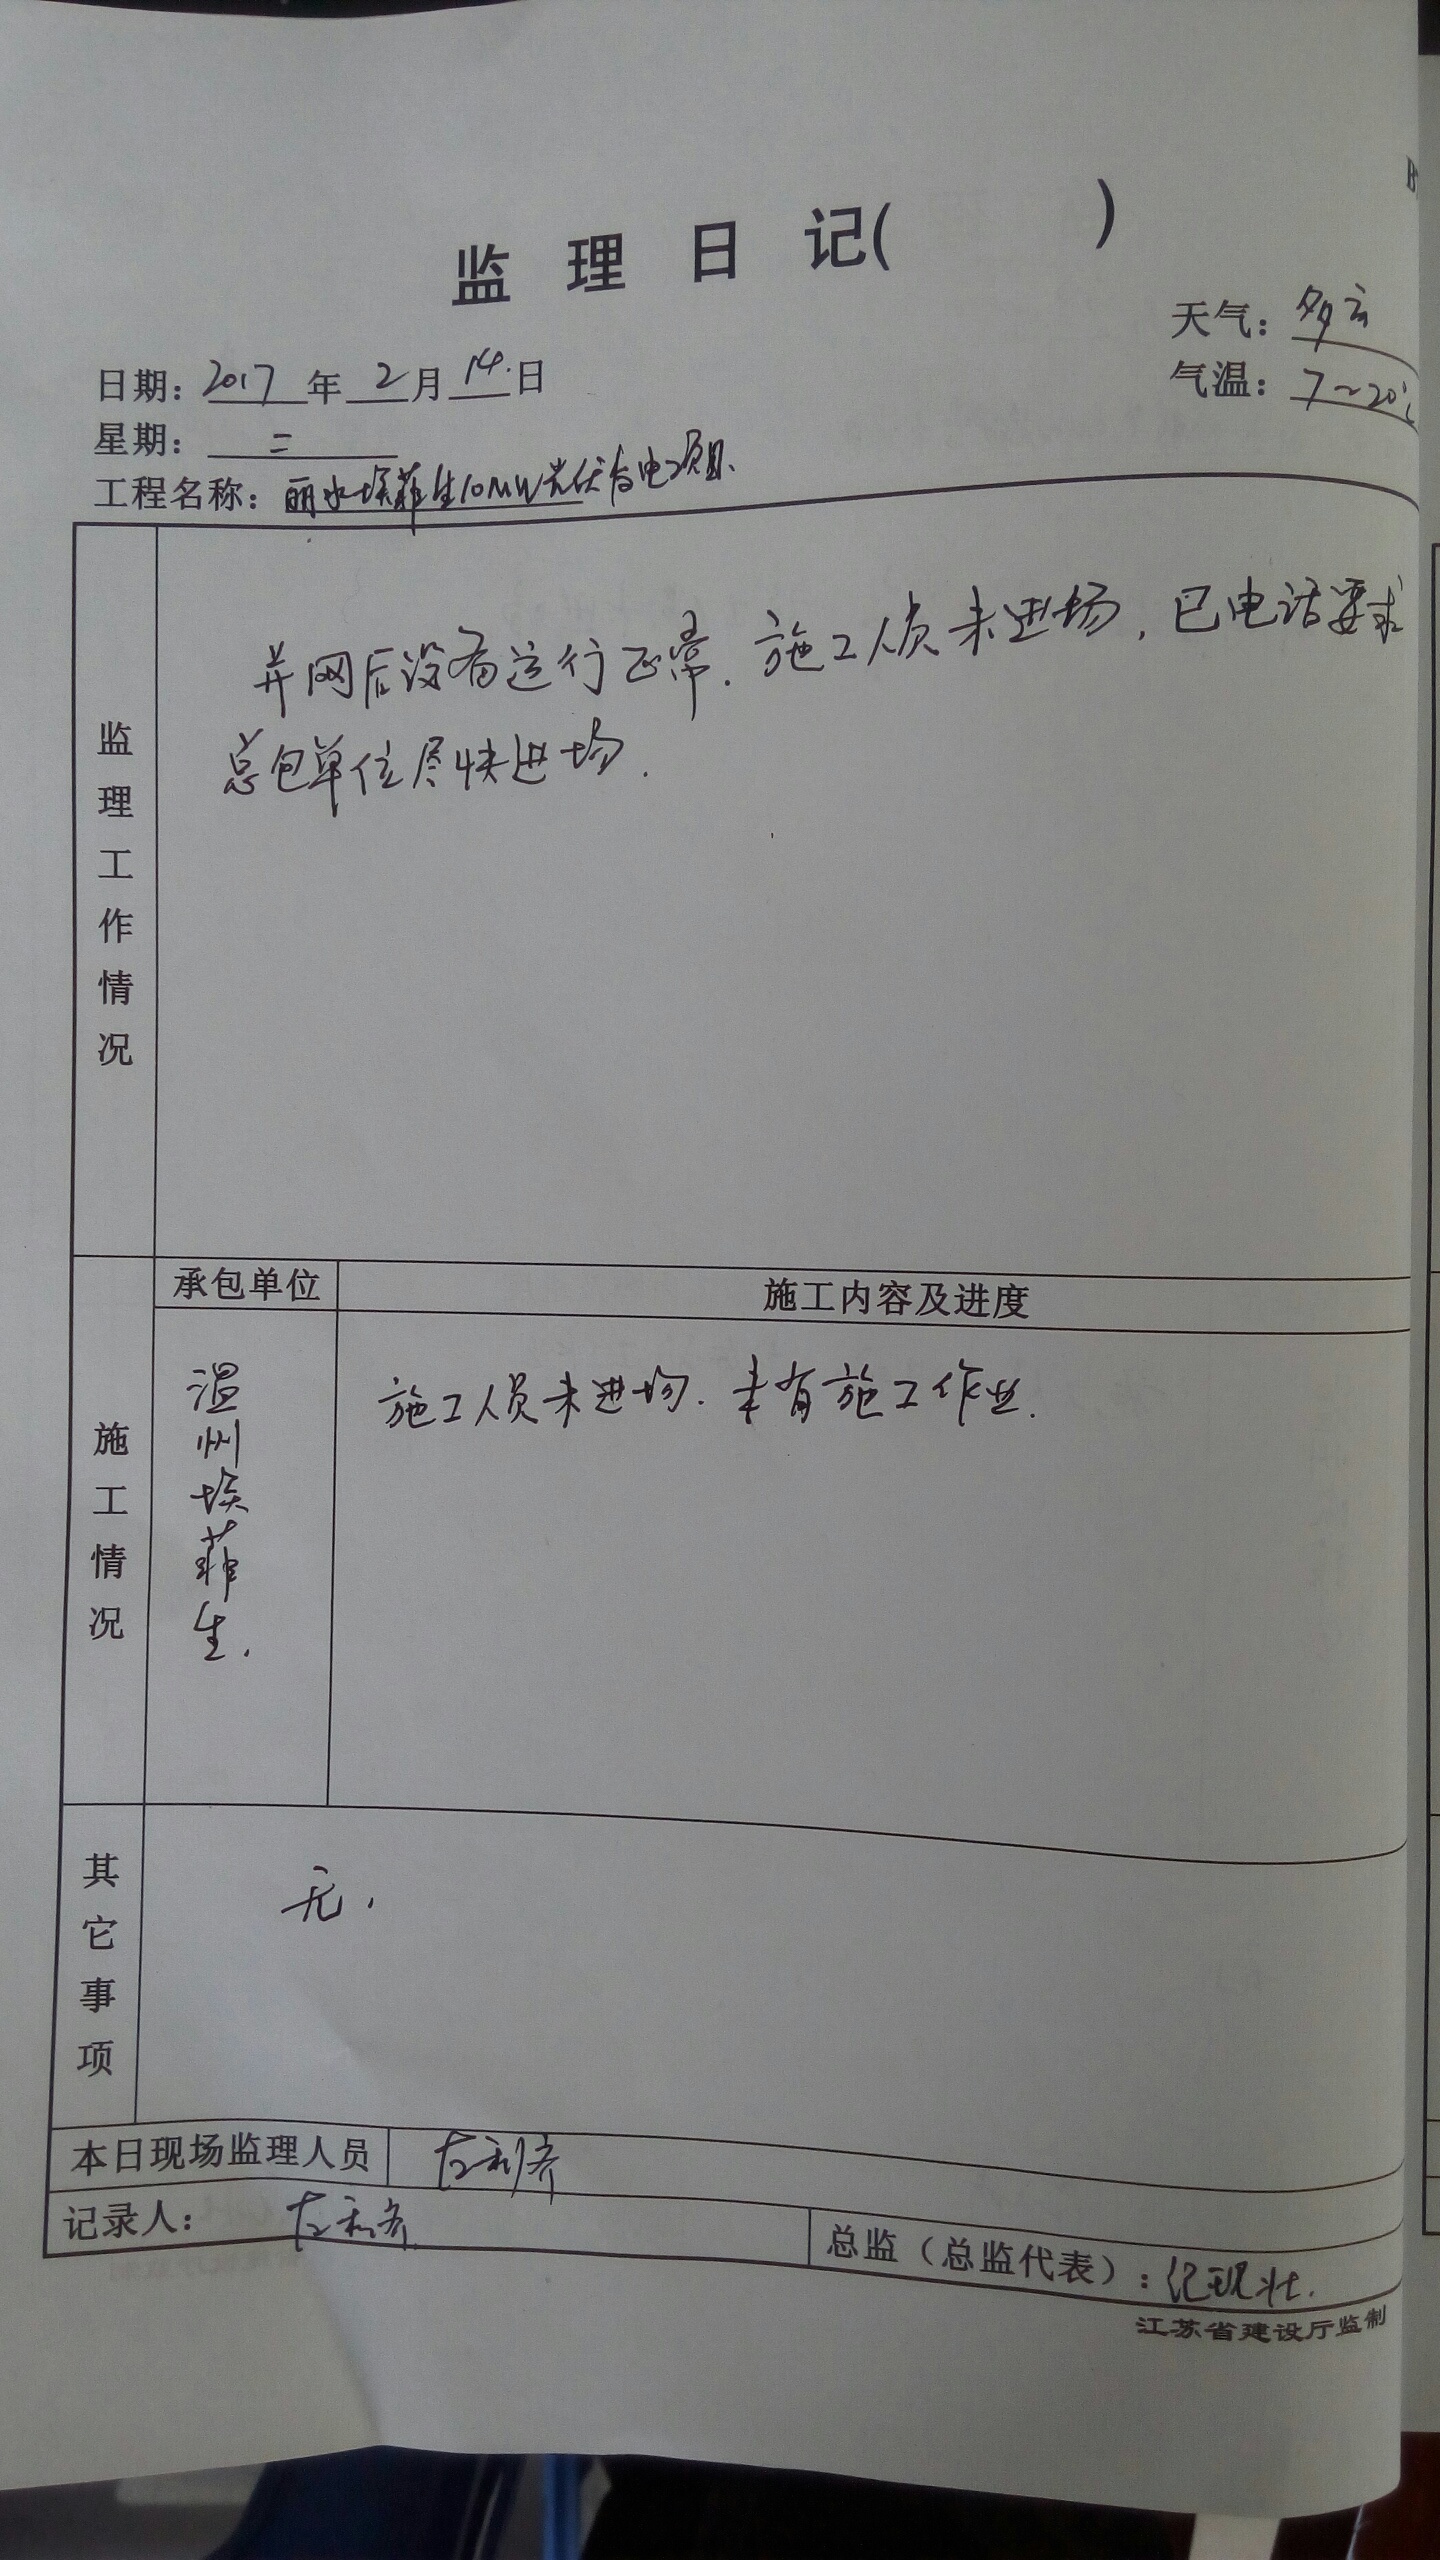 监理日记(      )
天气：多云
气温：7～20℃
日期：2017年2月14.日
星期：二
工程名称：丽水埃菲生10MW光伏发电项目.
监理工作情况
并网后设备运行正常.施工人员未进场,已电话要求
总包单位尽快进场.
施工情况
承包单位
施工内容及进度
温州埃菲生.
施工人员未进场.未有施工作业.
其它事项
无.
本日现场监理人员 左利齐
记录人： 左利齐
总监（总监代表）：纪现壮.
江苏省建设厅监制